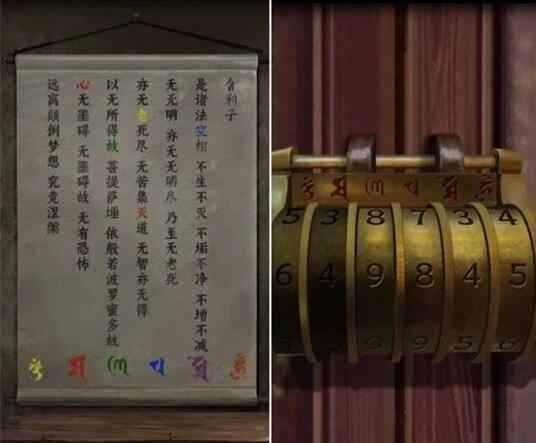 舍利子
是诸法空相 不生不灭 不垢不净 不增不减
无无明 亦无无明尽 乃至无老死
亦无老死尽 无苦集灭道 无智亦无得
以无所得故 菩提萨埵 依般若波罗蜜多故
心无罣碍 无罣碍故 无有恐怖
远离颠倒梦想 究竟涅槃
5 3 8 7 3 4
6 4 9 8 4 5